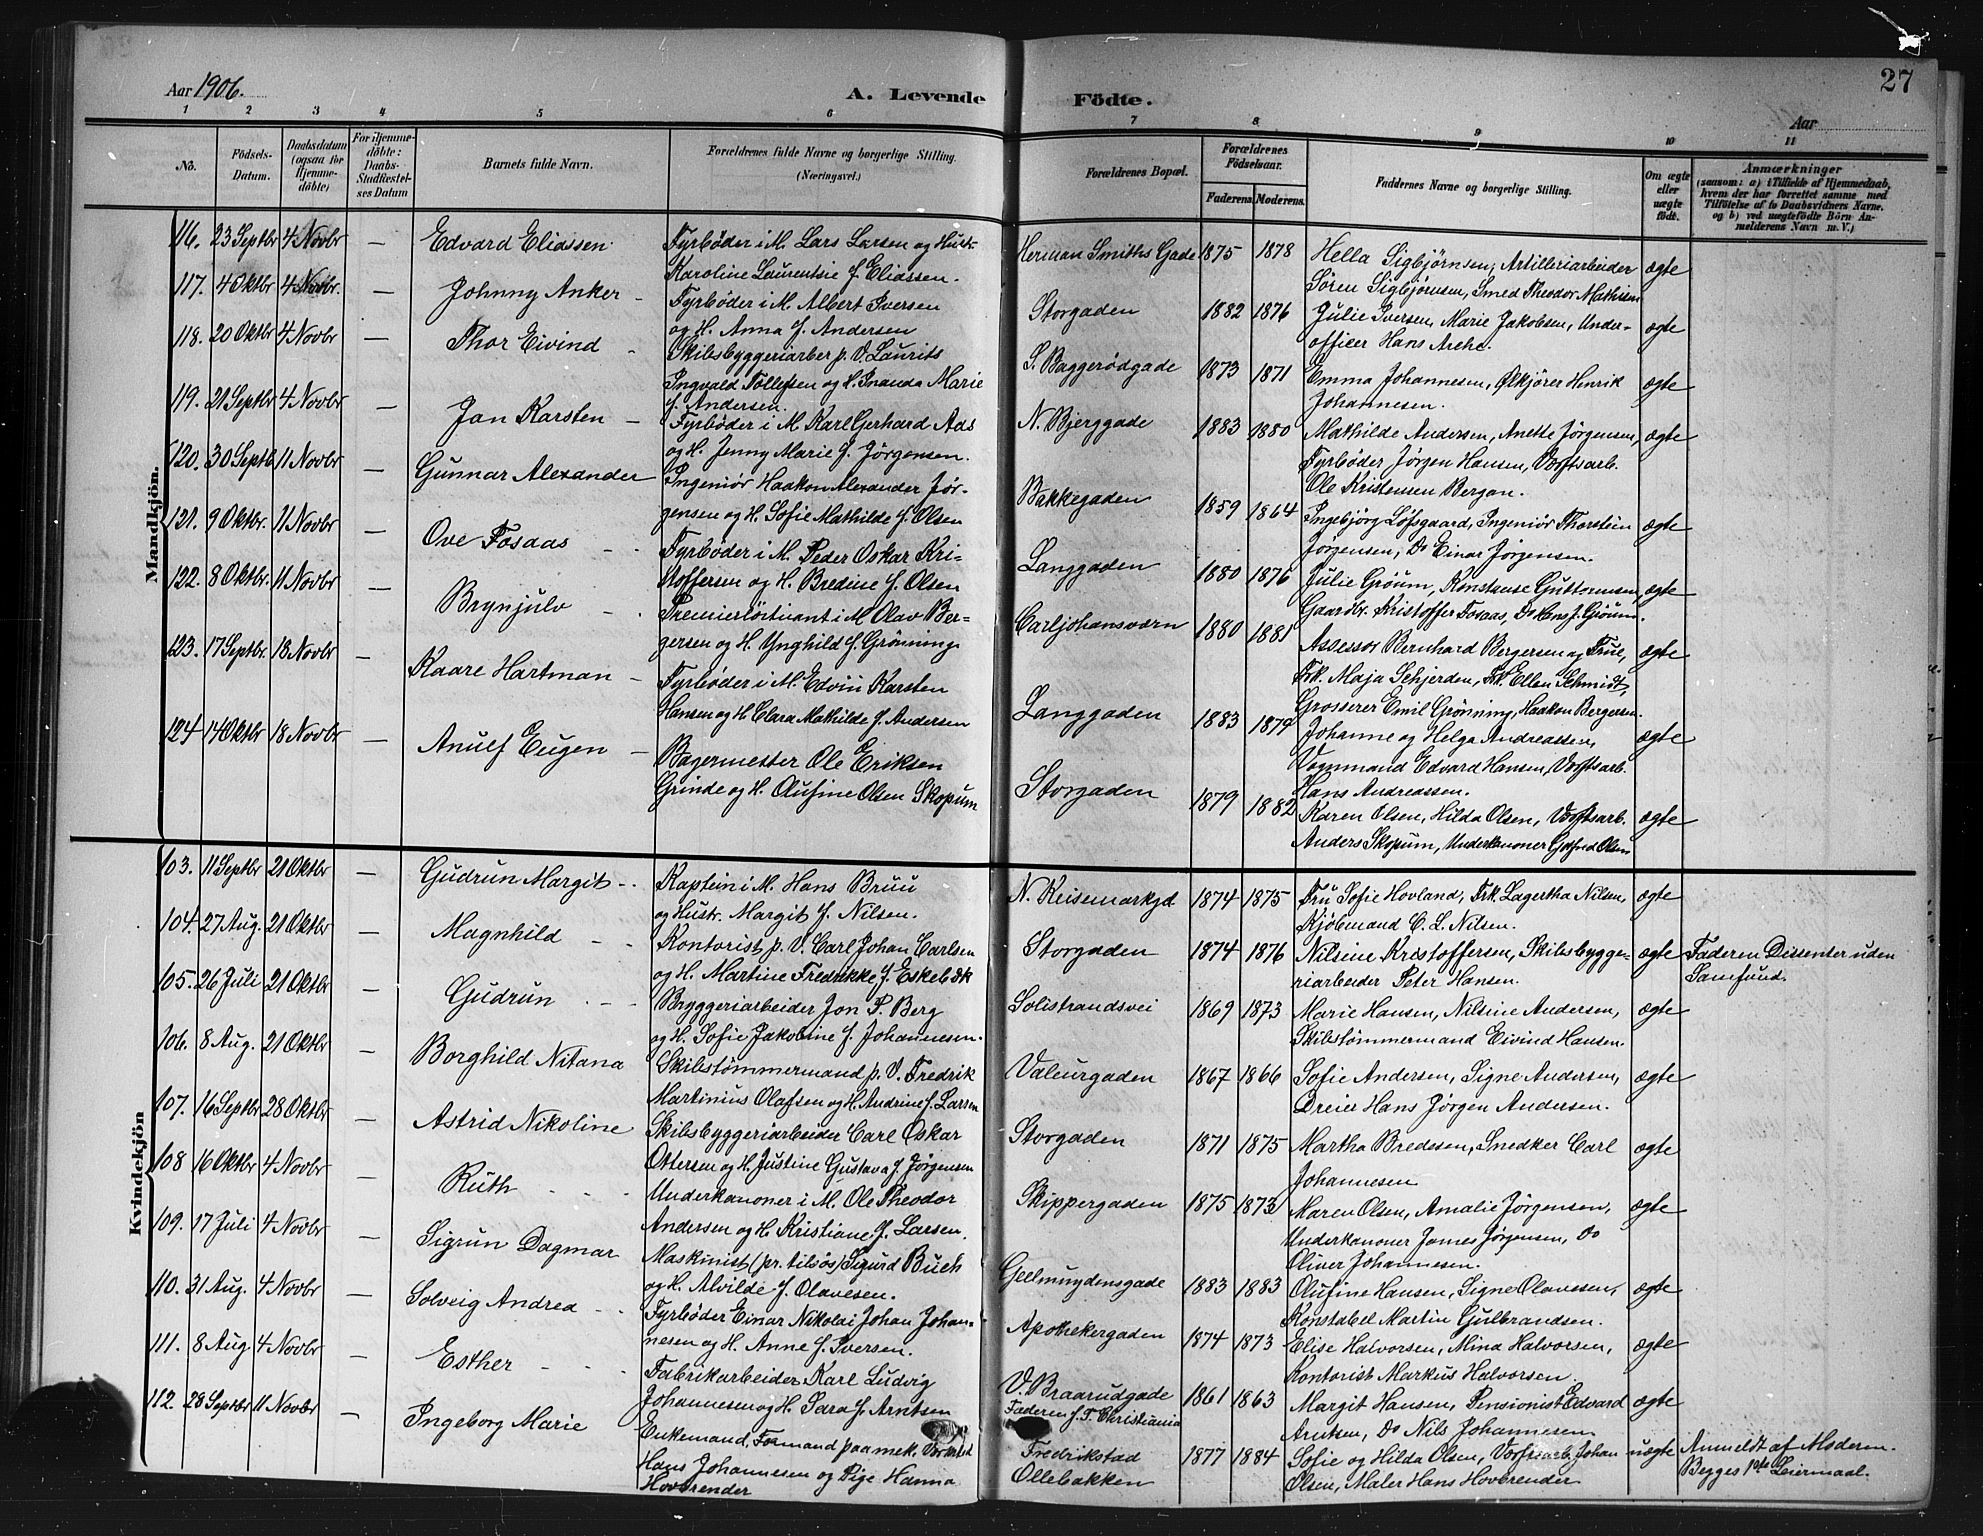 27
Aar 1906.
A. Levende Födte.
Aar
1 2 3 4 5 6 7 8 9 10 11
No.
Födsels-Datum.
Daabsdatum (ogsaa for Hjemme-döbte)
For Hjemme-döbte: Daabs-Stadfæstel-ses Datum
Barnets fulde Navn.
Forældrenes fulde Navne og borgerlige Stilling. (Næringsvei.)
Forældrenes Bopæl.
Forældrenes Födselsaar.
Faderens Moderens.
Faddernes Navne og borgerlige Stilling.
Om ægte eller uægte födt.
Anmærkninger
(saasom: a) i Tilfælde af Hjemmedaab,
hvem der har forrettet samme med
Tilföielse af to Daabsvidners Navne.
og b) ved uægtefödte Börn An-
melderens Navn m. V.)
Mandkjön.
116. 23 Septbr 4 Novbr — Edvard Eliassen Fyrbøder i M. Lars Larsen og Hustr. Karoline Laurentsie f. Eliassen. Herman Smiths Gade 1875 1878 Hella Sigbjørnsen, Artilleriarbeider Sören Sigbjörnsen, Smed Theodor Mathisen ægte
117. 4 Oktbr 4 Novbr. — Johnny Anker Fyrbøder i M. Albert Iversen og H. Anna f. Andersen Storgaden 1882 1876 Julie Iversen, Marie Jakobsen, Under-officer Hans Arche. ægte
118. 20 Oktbr 4 Novbr — Thor Eivind Skibsbyggeriarber p. V. Laurits Ingvald Tollefsen og H. Inanda Marie f. Andersen. S. Baggerödgade 1873 1871 Emma Johannesen, Ølkjörer Henrik Johannesen. ægte
119. 21 Septbr 4 Novbr — Jan Karsten Fyrbøder i M. Karl Gerhard Aas og H. Jenny Marie f. Jörgensen. N. Bjerggade 1883 1880 Mathilde Andersen, Anette Jörgensen, Fyrbøder Jörgen Hansen, Værftsarb. Ole Kristensen Bergan. ægte
120. 30 Septbr 11 Novbr — Gunnar Alexander Ingeniör Haakon Alexander Jör-gensen og H. Sofie Mathilde f. Olsen Bakkegaden 1859 1864 Ingebjörg Løfsgaard, Ingeniör Thorstein Jörgensen, Do Einar Jörgensen. ægte
121. 9 Oktbr. 11 Novbr — Ove Fosaas Fyrbøder i M. Peder Oskar Kri-stoffersen og H. Bredine f. Olsen Langgaden 1880 1876 Julie Gröum, Konstanse Guttormsen, Gaardbr. Kristoffer Fosaas, Do Hans J. Gröum. ægte
122. 8 Oktbr. 11 Novbr — Brynjulv Premierlöitnant i M. Olav Ber-gersen og H. Ynghild f. Grönning Carljohansværn 1880 1881 Assessor Bernhard Bergersen og Frue, Frk. Maja Schjerden, Frk. Ellen Schmidt, Grosserer Emil Grönning, Haakon Bergersen. ægte
123. 17 Septbr. 18 Novbr — Kaare Hartman Fyrbøder i M. Edvin Karsten Hansen og H. Clara Mathilde f. Andersen Langgaden 1883 1879 Johanne og Helga Andreassen, Vognmand Edvard Hansen, Værftsarb. Hans Andreassen. ægte
124 14 Oktbr 18 Novbr — Anulf Eugen Bagermester Ole Eriksen Grinde og H. Olufine Olsen Skopum Storgaden 1879 1882 Karen Olsen, Hilda Olsen, Værftsarb. Anders Skopum, Underkanoner Gotfred Olsen ægte
Kvindekjön
103. 11 Septbr 21 Oktbr — Gudrun Margit Kaptein i M. Hans Bruu og Hustr. Margit f. Nilsen. N. Keisemarkgd 1874 1875 Fru Sofie Hovland, Frk. Lagertha Nilsen, Kjöbmand C. L. Nilsen. ægte
104. 27 Aug. 21 Oktbr — Magnhild Kontorist p. V. Carl Johan Carlsen og H. Martine Fredrikke f. Eskebæk Storgaden 1874 1876 Nilsine Kristoffersen, Skibsbygge-riarbeider Peter Hansen. ægte Faderen Dissenter uden Samfund.
105. 26 Juli 21 Oktbr — Gudrun Bryggeriarbeider Jon P. Berg og H. Sofie Jakobine f. Johannesen. Solistrandsvei 1869 1873 Marie Hansen, Nilsine Andersen, Skibstömmermand Eivind Hansen. ægte
106. 8 Aug. 21 Oktbr — Borghild Nitana Skibstömmermand p. V. Fredrik Martinius Olafsen og H. Andrine f. Larsen Valeurgaden 1867 1866 Sofie Andersen, Signe Andersen, Dreier Hans Jörgen Andersen. ægte
107. 16 Septbr 28 Oktbr — Astrid Nikoline Skibsbyggeriarbeider Carl Oskar Ottersen og H. Justine Gustava f. Jörgensen Storgaden 1871 1875 Martha Bredesen, Snedker Carl Johannesen ægte
108 16 Oktbr 4 Novbr — Ruth Underkanoner i M. Ole Theodor Andersen og H. Kristiane f. Larsen. Skippergaden 1875 1873 Maren Olsen, Amalie Jörgensen, Underkanoner James Jörgensen, Do Oliver Johannesen. ægte
109. 17 Juli 4 Novbr — Sigrun Dagmar Maskinist (pr. tilsös) Sigurd Buch og H. Alvilde f. Olavesen. Geelmuydensgade 1883 1883 Olufine Hansen, Signe Olavesen, Konstabel Martin Gulbrandsen. ægte
110. 31 Aug. 4 Novbr — Solveig Andrea Fyrbøder Einar Nikolai Johan Johan-nesen og H. Anne f. Iversen. Apothekergaden 1874 1873 Elise Halvorsen, Mina Halvorsen, Kontorist Markus Halvorsen. ægte
111. 8 Aug 4 Novbr — Esther Fabrikarbeider Karl Ludvig Johannesen og H. Sara f. Arntsen V. Braarudgade 1861 1863 Margit Hansen, Pensionist Edvard Arntsen, Do Nils Johannesen ægte
112. 28 Septbr 11 Novbr — Ingeborg Marie Enkemand, Formand paa mek. Værksted Hans Johannesen og Pige Hanna Hovbrender Faderen f. T. Christiania Fredrikstad Ollebakken 1877 1884 Sofie og Hilda Olsen, Værftsarb. Johan Olsen, Maler Hans Hovbrender uægte Anmeldt af Moderen. Begges 1ste Leiermaal.